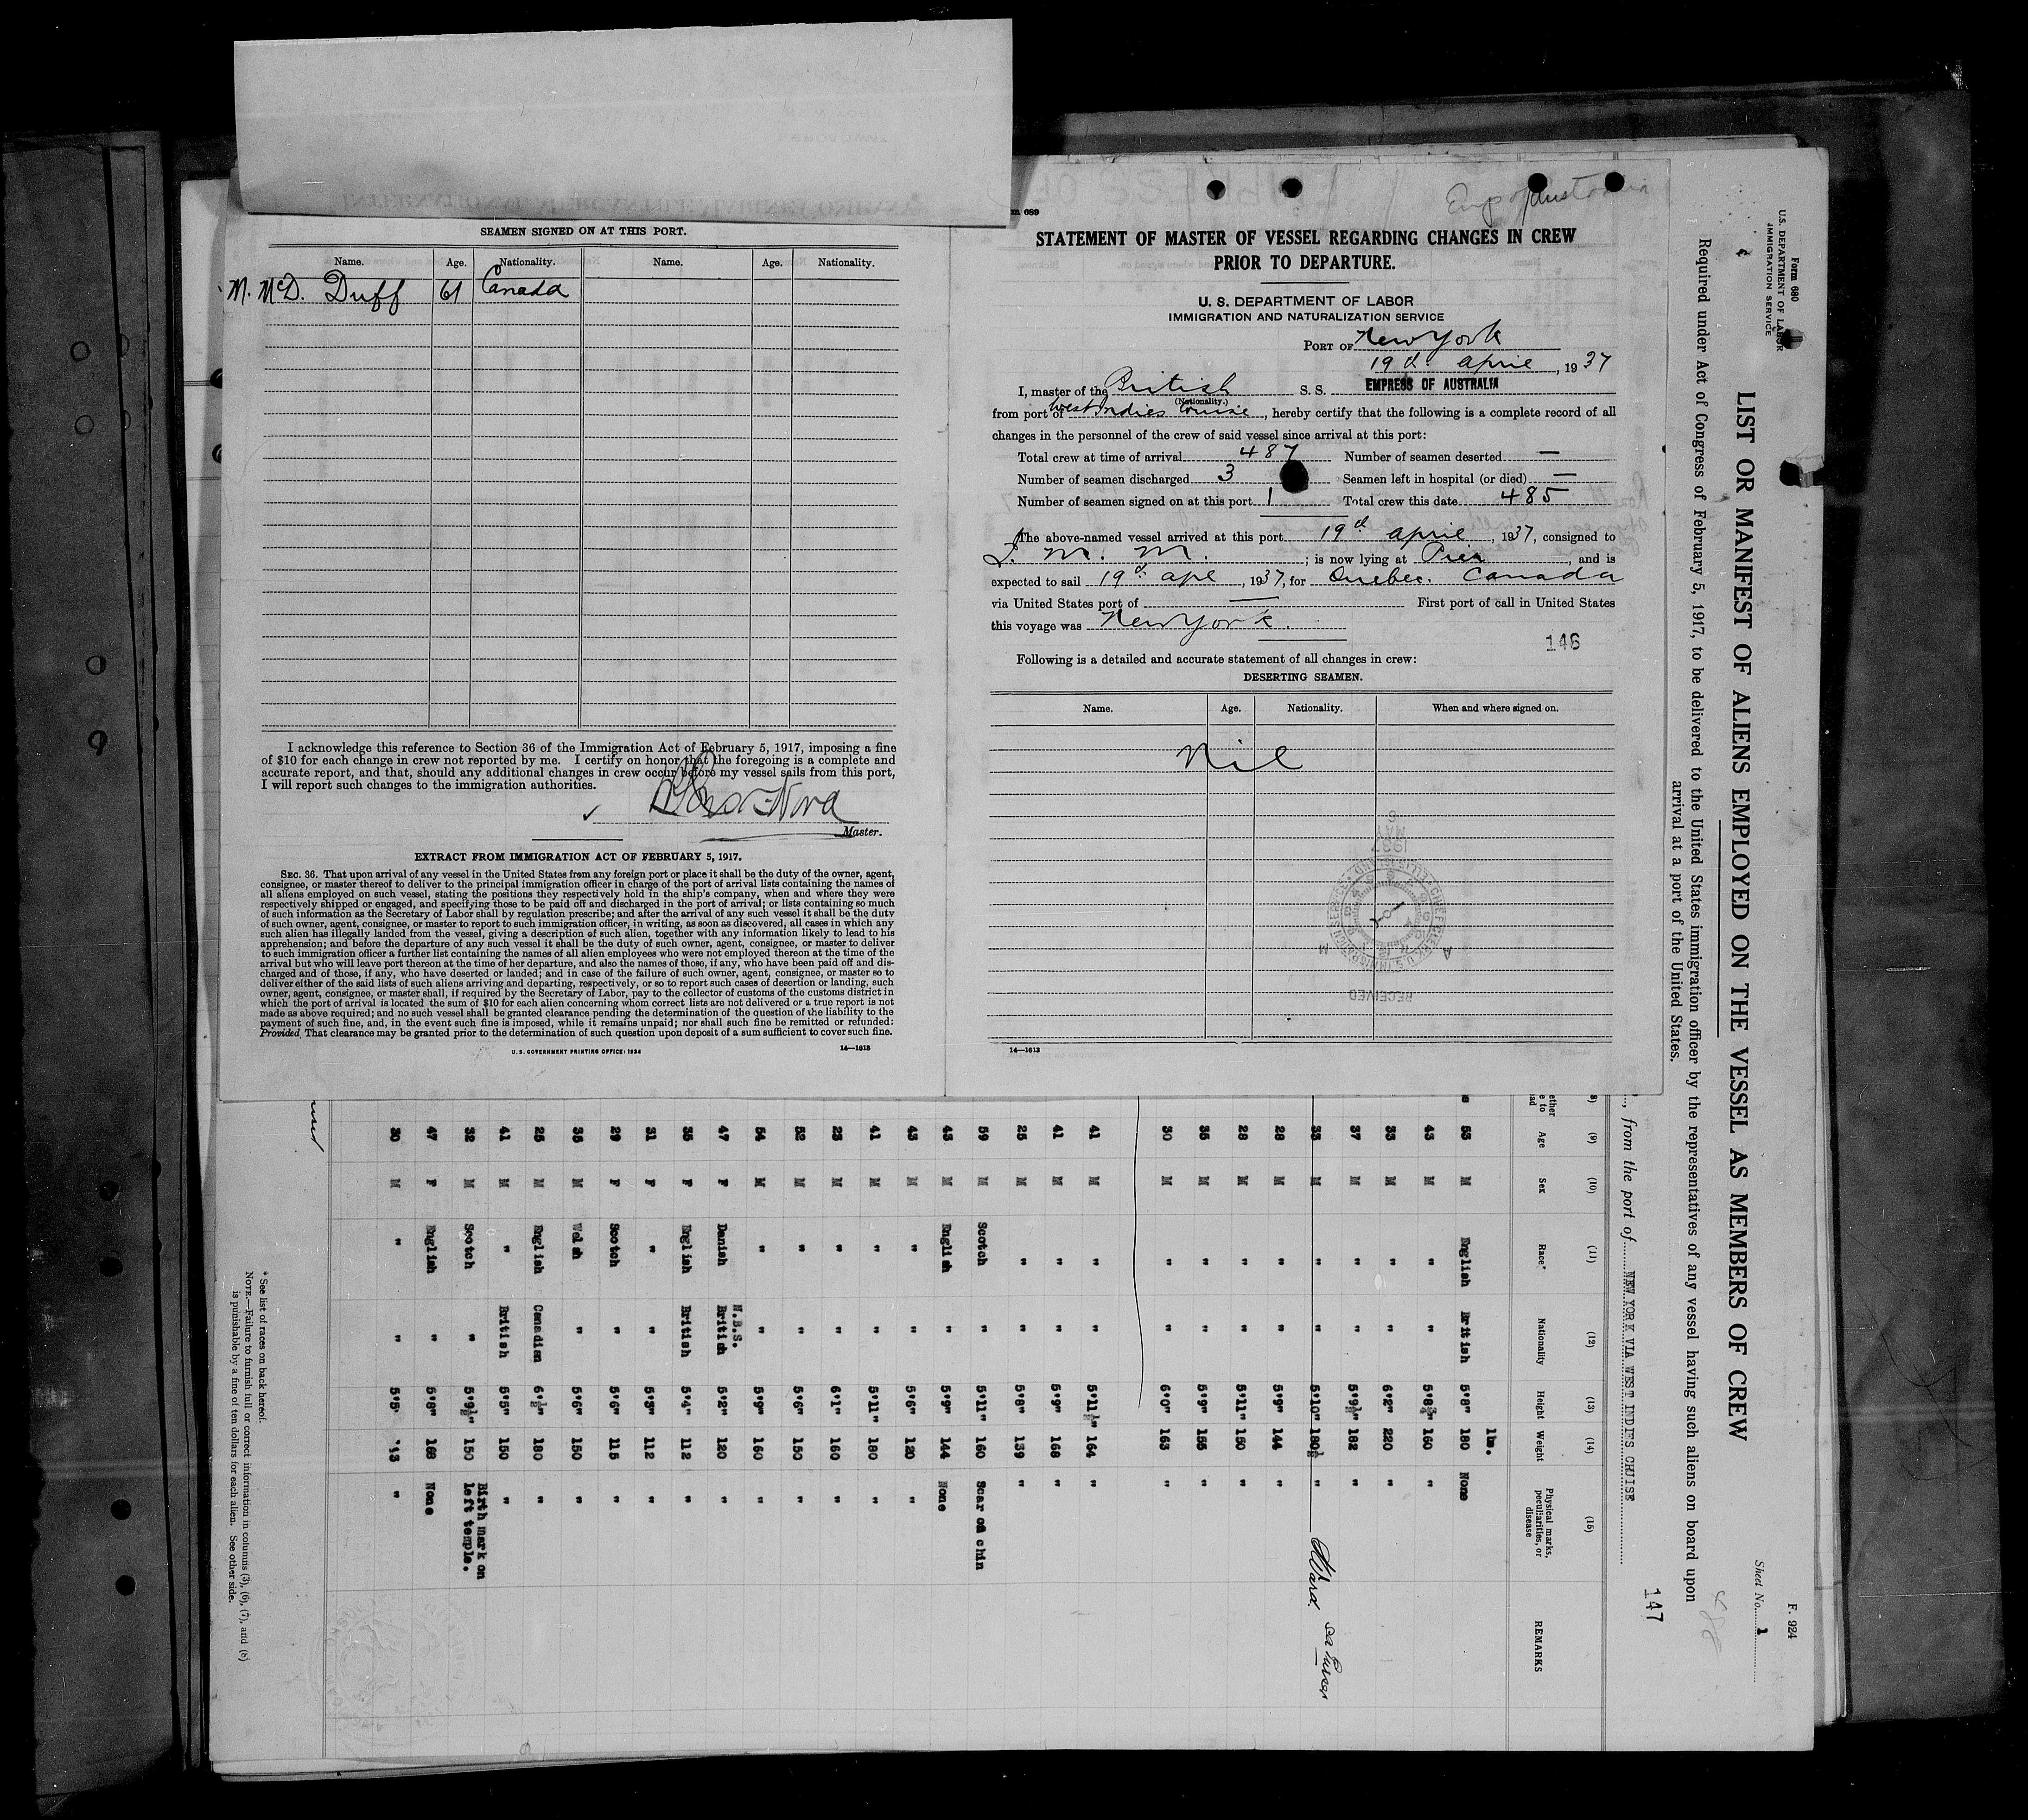 SEAMEN SIGNED ON AT THIS PORT.
Name. Age. Nationality. Name. Age. Nationality.
M. McD. Duff 61 Canada
I acknowledge this reference to Section 36 of the Immigration Act of February 5, 1917, imposing a fine
of $10 for each change in crew not reported by me. I certify on honor that the foregoing is a complete and
accurate report, and that, should any additional changes in crew occur before my vessel sails from this port,
I will report such changes to the immigration authorities.
Master.
EXTRACT FROM IMMIGRATION ACT OF FEBRUARY 5, 1917.
SEC. 36. That upon arrival of any vessel in the United States from any foreign port or place it shall be the duty of the owner, agent,
consignee, or master thereof to deliver to the principal immigration officer in charge of the port of arrival lists containing the names of
all aliens employed on such vessel, stating the positions they respectively hold in the ship's company, when and where they were
respectively shipped or engaged, and specifying those to be paid off and discharged in the port of arrival; or lists containing so much
of such information as the Secretary of Labor shall by regulation prescribe; and after the arrival of any such vessel it shall be the duty
of such owner, agent, consignee, or master to report to such immigration officer, in writing, as soon as discovered, all cases in which any
such alien has illegally landed from the vessel, giving a description of such alien, together with any information likely to lead to his
apprehension; and before the departure of any such vessel it shall be the duty of such owner, agent, consignee, or master to deliver
to such immigration officer a further list containing the names of all alien employees who were not employed thereon at the time of the
arrival but who will leave port thereon at the time of her departure, and also the names of those, if any, who have been paid off and dis-
charged and of those, if any, who have deserted or landed; and in case of the failure of such owner, agent, consignee, or master so to
deliver either of the said lists of such aliens arriving and departing, respectively, or so to report such cases of desertion or landing, such
owner, agent, consignee, or master shall, if required by the Secretary of Labor, pay to the collector of customs of the customs district in
which the port of arrival is located the sum of $10 for each alien concerning whom correct lists are not delivered or a true report is not
made as above required; and no such vessel shall be granted clearance pending the determination of the question of the liability to the
payment of such fine, and, in the event such fine is imposed, while it remains unpaid; nor shall such fine be remitted or refunded:
Provided, That clearance may be granted prior to the determination of such question upon deposit of a sum sufficient to cover such fine.
U. S. GOVERNMENT PRINTING OFFICE: 1934 14—1613
Emp of Australia
m 689
STATEMENT OF MASTER OF VESSEL REGARDING CHANGES IN CREW
PRIOR TO DEPARTURE.
U. S. DEPARTMENT OF LABOR
IMMIGRATION AND NATURALIZATION SERVICE
PORT OF New York
19th April, 1937
I, master of the British S. S. EMPRESS OF AUSTRALIA
(Nationality.)
from port of West Indies Cruise, hereby certify that the following is a complete record of all
changes in the personnel of the crew of said vessel since arrival at this port:
Total crew at time of arrival 487 Number of seamen deserted —
Number of seamen discharged 3 Seamen left in hospital (or died) —
Number of seamen signed on at this port 1 Total crew this date 485
The above-named vessel arrived at this port 19th April, 1937, consigned to
M. M. ; is now lying at Pier, and is
expected to sail 19th Apl, 1937, for Quebec. Canada
via United States port of — First port of call in United States
this voyage was New York.
146
Following is a detailed and accurate statement of all changes in crew:
DESERTING SEAMEN.
Name. Age. Nationality. When and where signed on.
Nil
1937
MAY
RECEIVED
14—1613
Form 680
U.S. DEPARTMENT OF LABOR
IMMIGRATION SERVICE
F. 924
Sheet No. 1
LIST OR MANIFEST OF ALIENS EMPLOYED ON THE VESSEL AS MEMBERS OF CREW
Required under Act of Congress of February 5, 1917, to be delivered to the United States immigration officer by the representatives of any vessel having such aliens on board upon
arrival at a port of the United States.
147
, from the port of NEW YORK VIA WEST INDIES CRUISE
(9) (10) (11) (12) (13) (14) (15)
Age Sex Race* Nationality Height Weight Physical marks, peculiarities, or disease REMARKS
lbs.
53 M English British 5'8" 180 None
43 M " " 5'8¾" 160 "
33 M " " 6'2" 220 "
37 M " " 5'9½" 182 "
33 M " " 5'10" 180½ " Ward.
28 M " " 5'9" 144 "
28 M " " 5'11" 150 "
35 M " " 5'9" 155 "
30 M " " 6'0" 163 "
41 M " " 5'11½" 164 "
41 M " " 5'9" 168 "
25 M " " 5'8" 139 "
59 M Scotch " 5'11" 160 Scar on chin
43 M English " 5'9" 144 None
43 M " " 5'6" 120 "
41 M " " 5'11" 180 "
23 M " " 6'1" 160 "
52 M " " 5'6" 150 "
54 M " " 5'9" 160 "
47 F Danish N.B.S. British 5'2" 120 "
35 F English British 5'4" 112 "
31 F " " 5'3" 112 "
29 F Scotch " 5'6" 115 "
35 M Welsh " 5'6" 150 "
25 M English Canadian 6'½" 180 "
41 M " British 5'5" 150 "
32 M Scotch " 5'9½" 150 Birth mark on left temple.
47 F English " 5'8" 168 None
30 M " " 5'5" "
* See list of races on back hereof.
NOTE.—Failure to furnish full or correct information in columns (3), (6), (7), and (8)
is punishable by a fine of ten dollars for each alien. See other side.